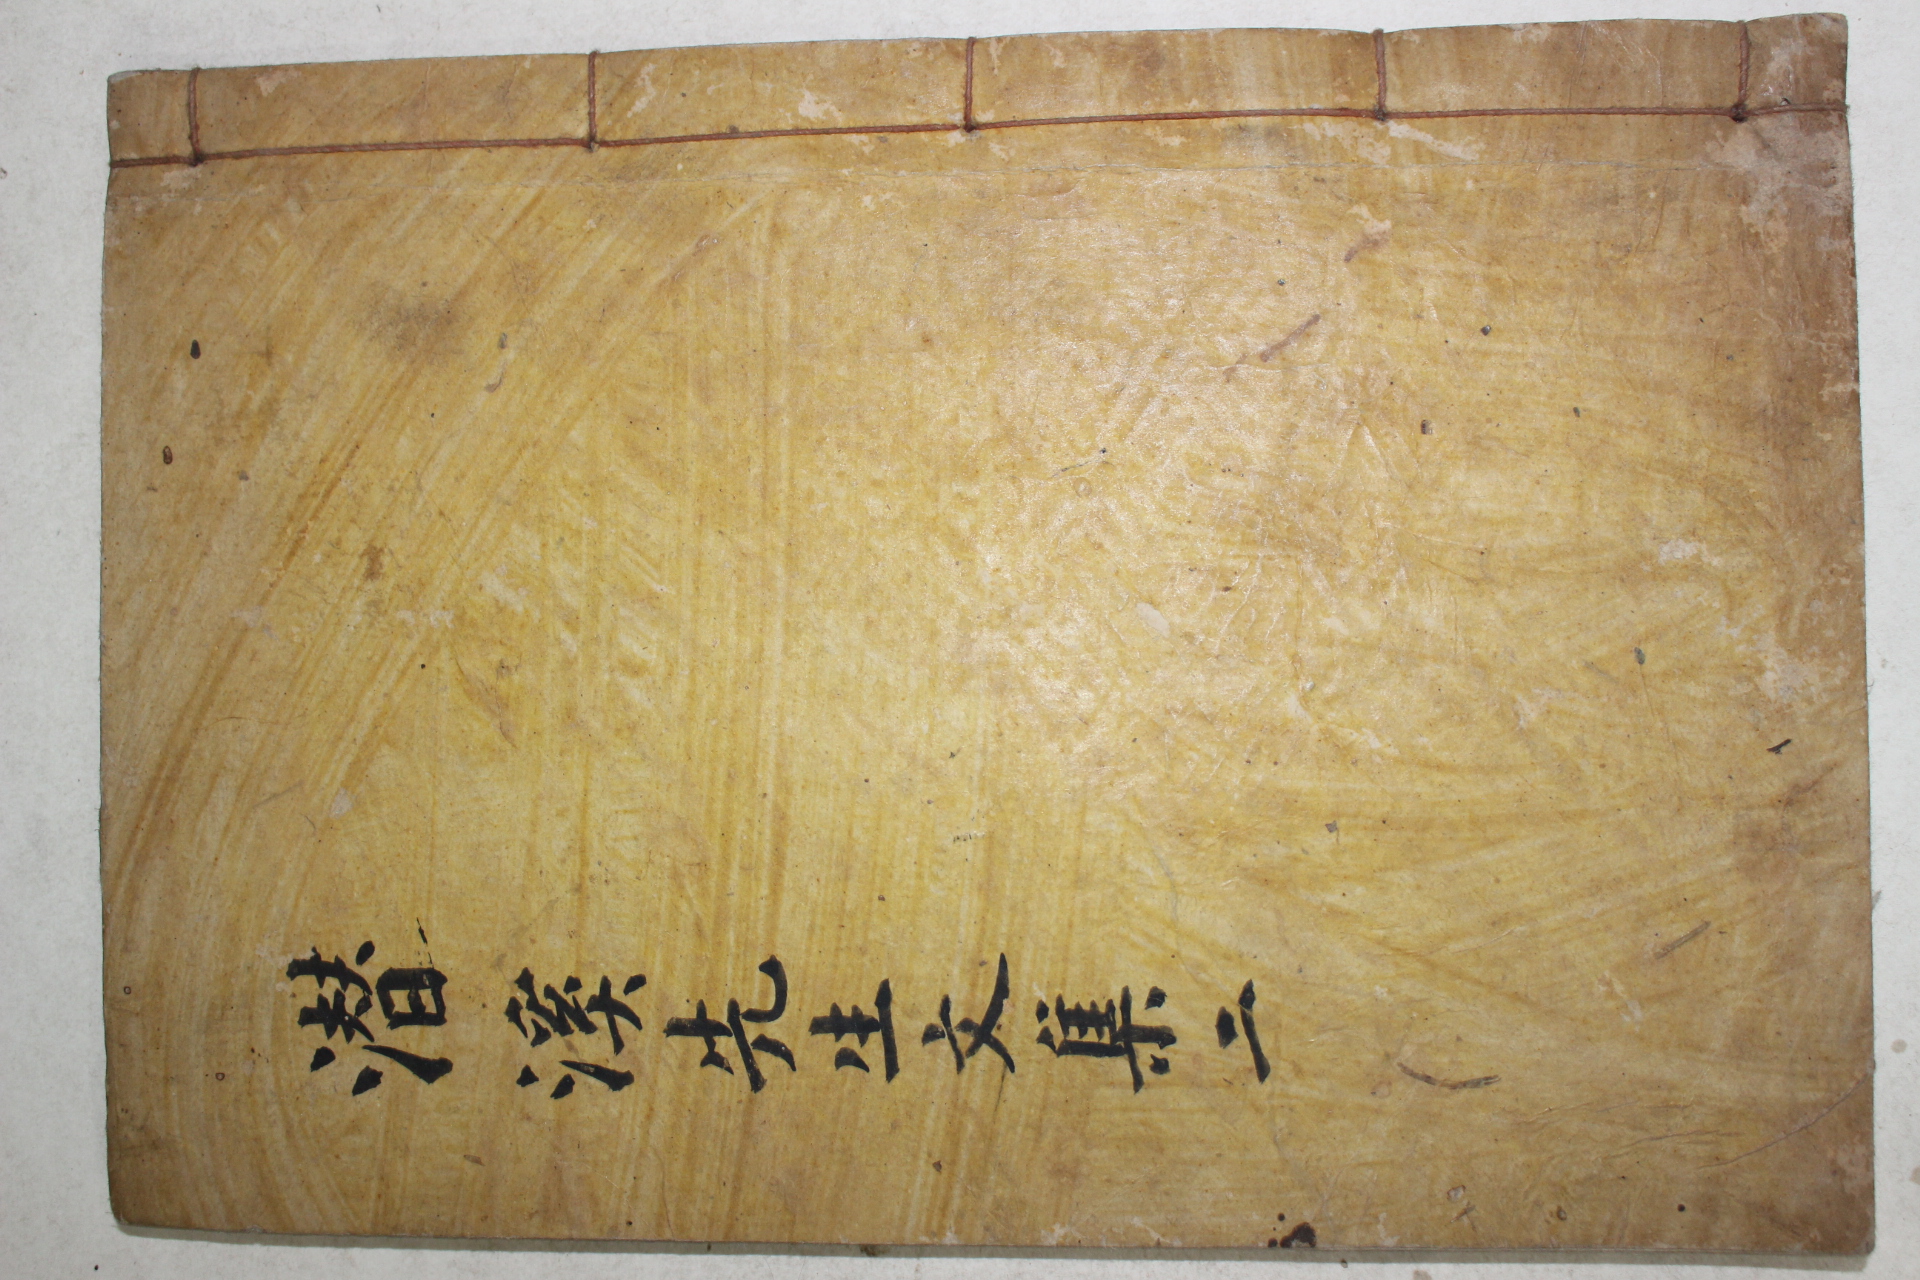 潜溪先生文集 二